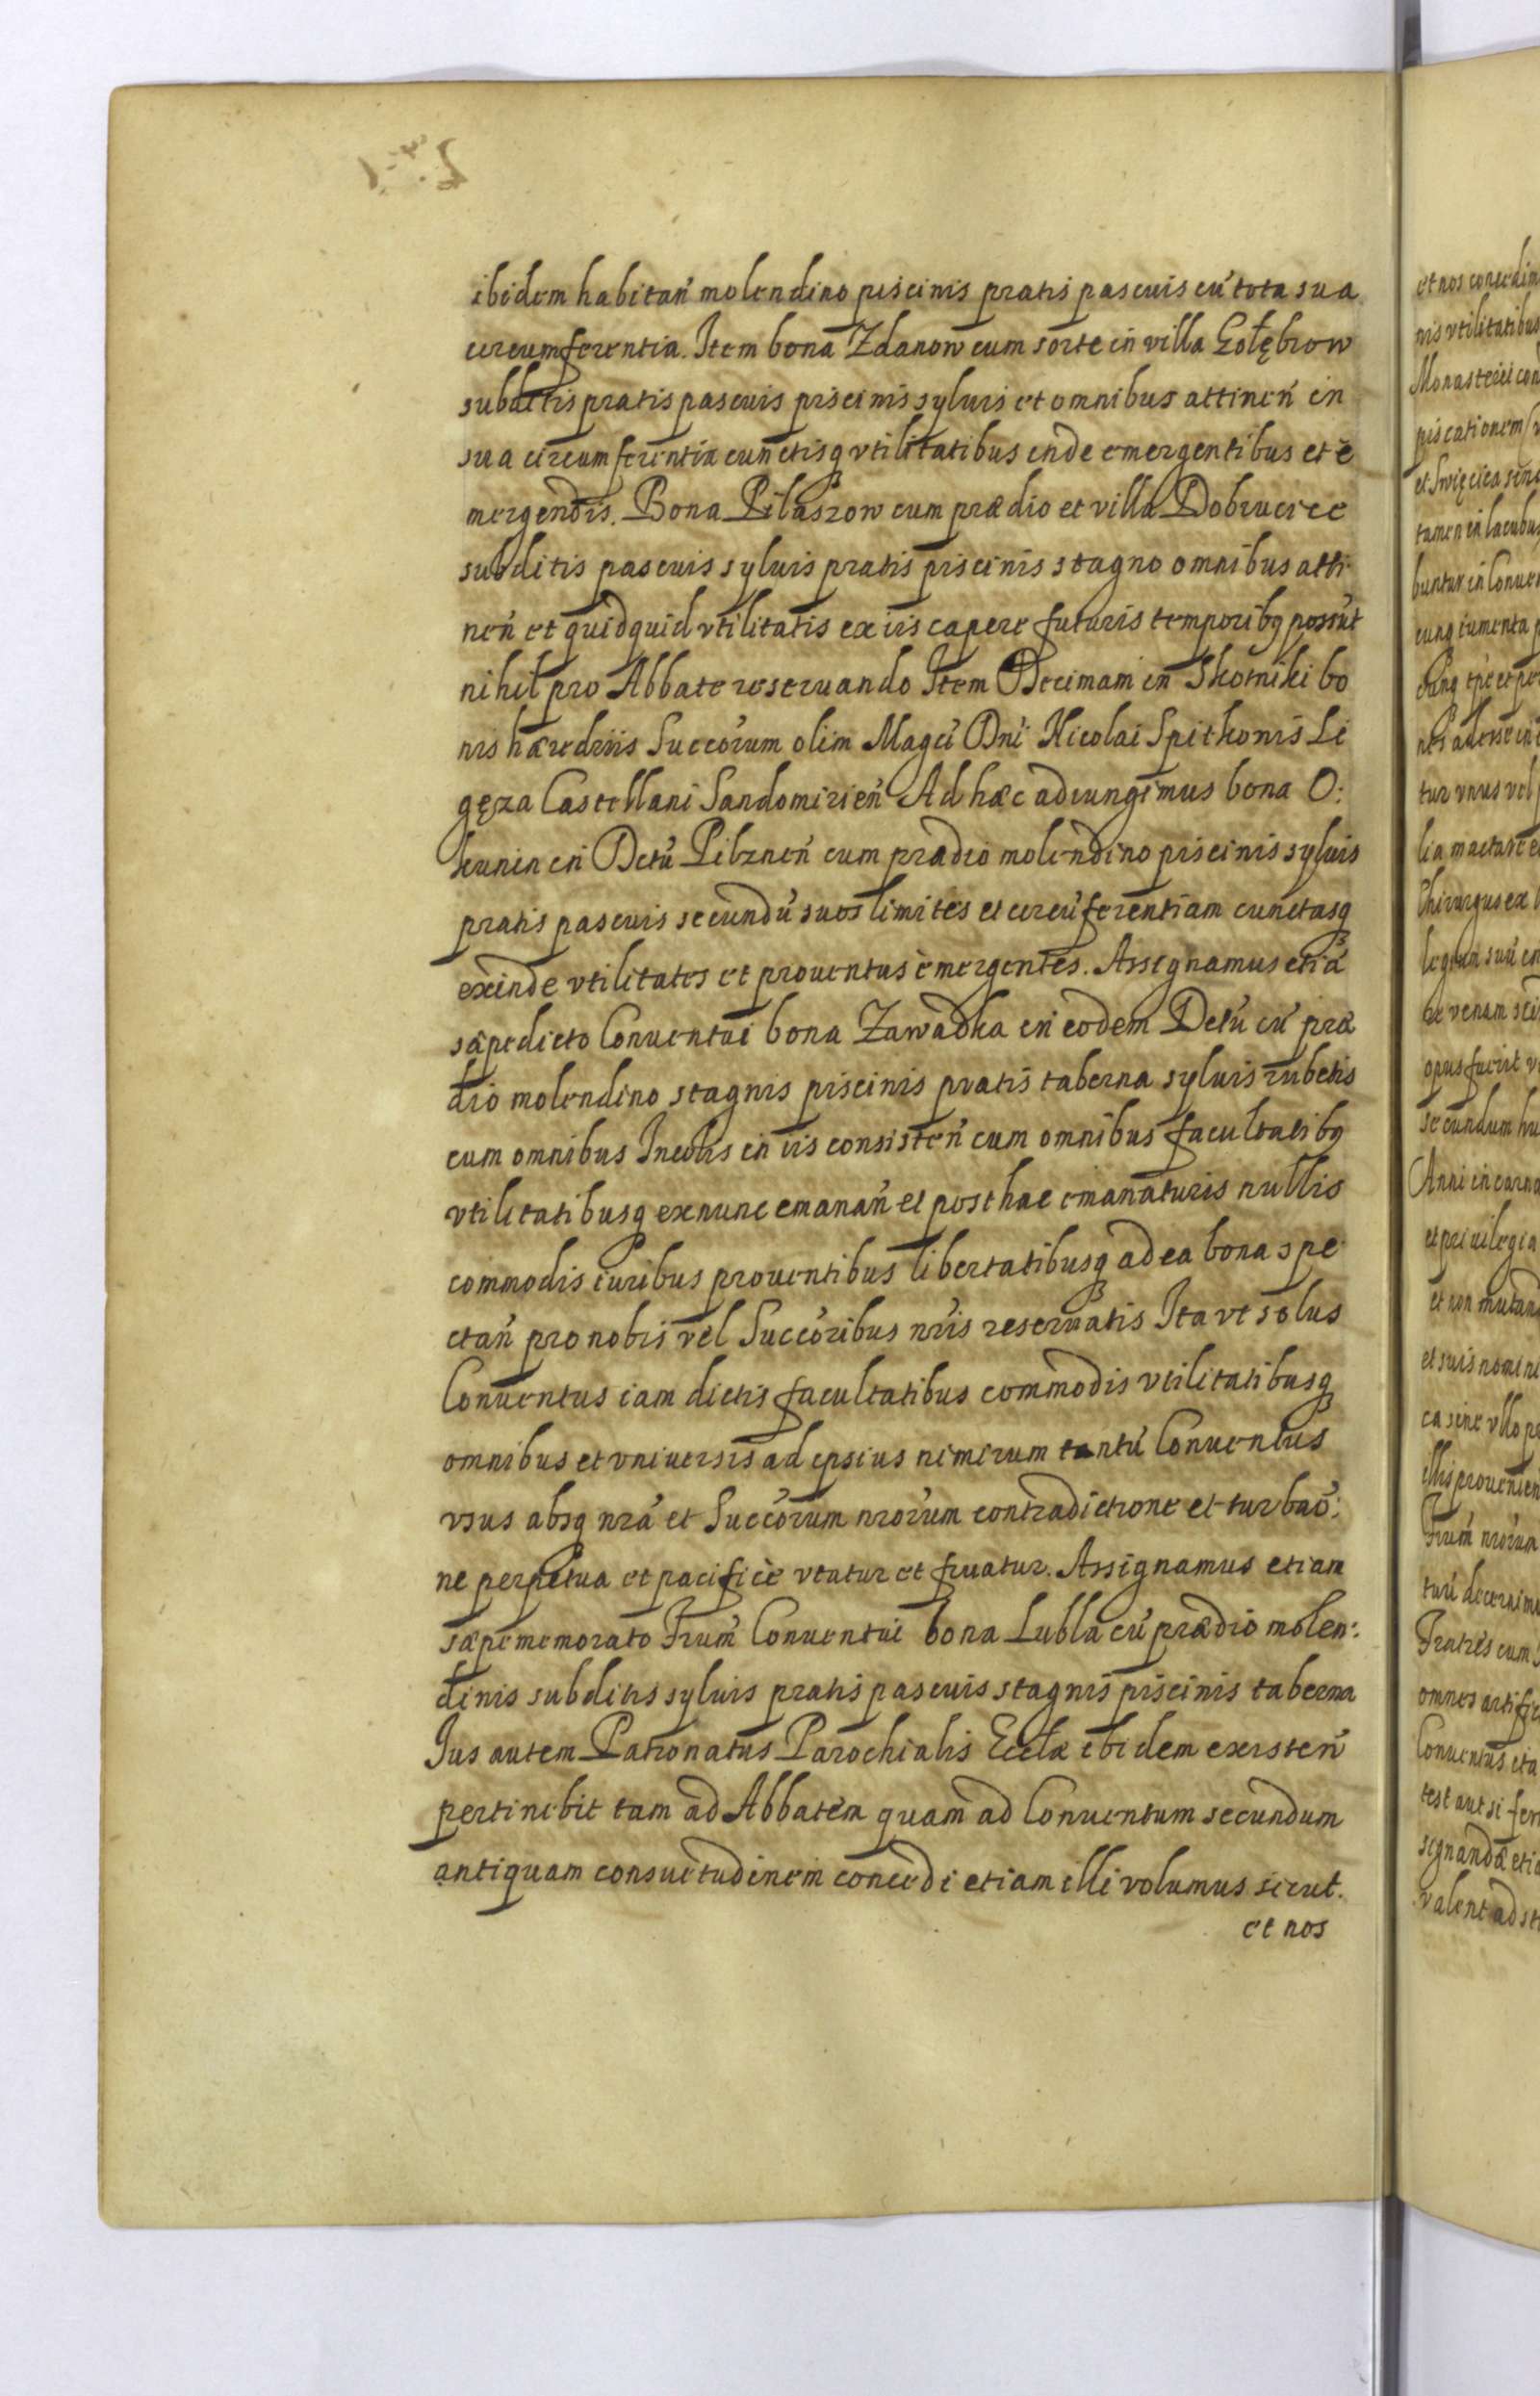 ibidem habitañ molendino piscinis pratis pascuis cũ tota sua
circumferentia. Item bona Zdanow cum sorte in villa Gołębiow
subditis pratis pascuis piscinis syluis et omnibus attineñ in
sua circumferentia cunctisq vtilitatibus inde emergentibus et è
mergendis. Bona Pilaszow cum prædio et villa Dobrucice
subditis pascuis syluis pratis piscinis stagno omnibus atti
neñ et quidquid vtilitatis ex iis capere futuris temporibq possũt
nihil pro Abbate reseruando Item Decimam in Skotniki bo
nis hærediis Succorum olim Magci Dni Nicolai Spitkonis Li
gęza Castellani Sandomirieñ Ad hæc adiungimus bona O:
kunin in Dctũ Pilzneñ cum prædio molendino piscinis syluis
pratis pascuis secundũ suos limites et circũferentiam cunctasq
exinde vtilitates et prouentus èmergentes. Assignamus etiã
sæpedicto Conuentui bona Zawadka in eodem Dctũ cũ præ
dio molendino stagnis piscinis pratis taberna syluis rubetis
cum omnibus Incolis in iis consisteñ cum omnibus facultatibq
vtilitatibusq exnunc emanañ et posthac emanaturis nullis
commodis iuribus prouentibus libertatibusq ad ea bona spe
ctañ pro nobis vel Succoribus nris reseruatis Ita vt solus
Conuentus iam dictis facultatibus commodis vtilitatibusq
omnibus et vniuersis ad ipsius nimirum tantũ Conuentus
vsus absq nrã et Succorum nrorum contradictione et turbaõ:
ne perpetua et pacificè vtatur et fruatur. Assignamus etiam
sæpememorato Frum Conuentui bona Lubla cũ prædio molen:
dinis subditis syluis pratis pascuis stagnis piscinis taberna
Ius autem Patronatus Parochialis Eccłæ ibidem existeñ
pertinebit tam ad Abbatem quam ad Conuentum secundum
antiquam consuetudinem concedi etiam illi volumus sicut.
et nos